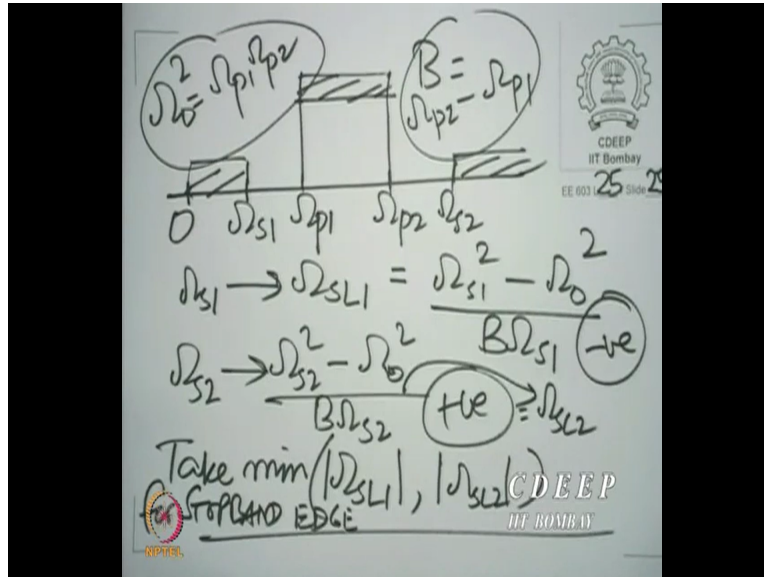 Ω₀² = Ωp1 Ωp2
B =
Ωp2 − Ωp1
CDEEP
IIT Bombay
EE 603 L 25 Slide 25
0 Ωs1 Ωp1 Ωp2 Ωs2
Ωs1 → ΩSL1 = (Ωs1² − Ω₀²) / (BΩs1) -ve
Ωs2 → (Ωs2² − Ω₀²) / (BΩs2) +ve = ΩSL2
Take min(|ΩSL1|, |ΩSL2|)
for STOPBAND EDGE
CDEEP
IIT BOMBAY
NPTEL